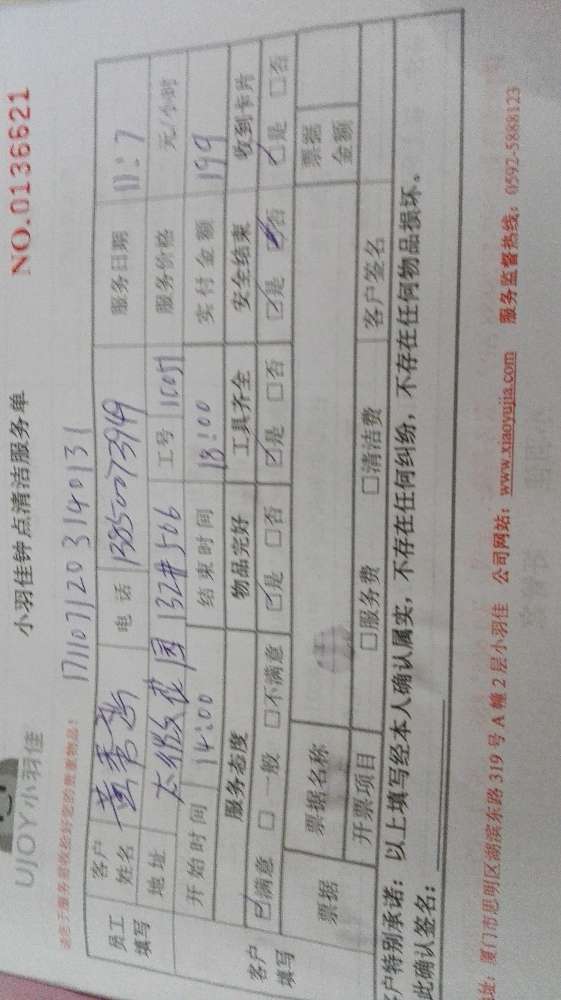 UJOY小羽佳
小羽佳钟点清洁服务单
NO.0136621
请您于服务前收检好您的贵重物品!
17110711203140131
员工填写 客户姓名 黄秀 电话 13850073949 服务日期 11:7
地址 132#506 工号 服务价格 元/小时
开始时间 14:00 结束时间 18:00 实付金额 199
客户填写 服务态度 物品完好 工具齐全 安全结束 收到卡片
☑满意 □一般 □不满意 ☑是 □否 ☑是 □否 ☑是 ☑否 ☑是 □否
票据 票据名称 票据金额
开票项目 □服务费 □清洁费 客户签名
户特别承诺:以上填写经本人确认属实,不存在任何纠纷,不存在任何物品损坏。
此确认签名:
址:厦门市思明区湖滨东路319号A幢2层小羽佳 公司网站:www.xiaoyujia.com 服务监督热线:0592-5888123